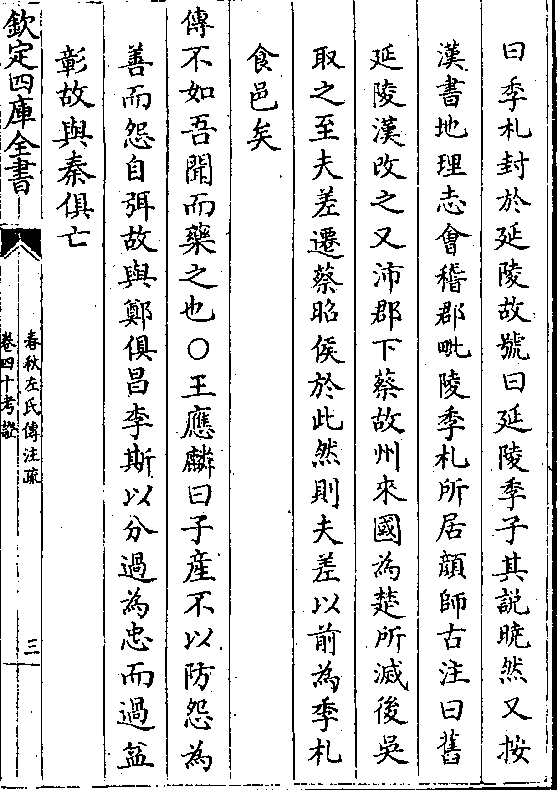 曰季札封於延陵故號曰延陵季子其説暁然又按
漢書地理志會稽郡毗陵季札所居顔師古注曰舊
延陵漢改之又沛郡下蔡故州來國為楚所滅後吳
取之至夫差遷蔡昭侯於此然則夫差以前為季札
食邑矣
傳不如吾聞而藥之也○王應麟曰子產不以防怨為
善而怨自弭故與鄭俱昌李斯以分過為忠而過益
彰故與秦俱亡
欽定四庫全書
春秋左氏傳注疏
卷四十考證
三